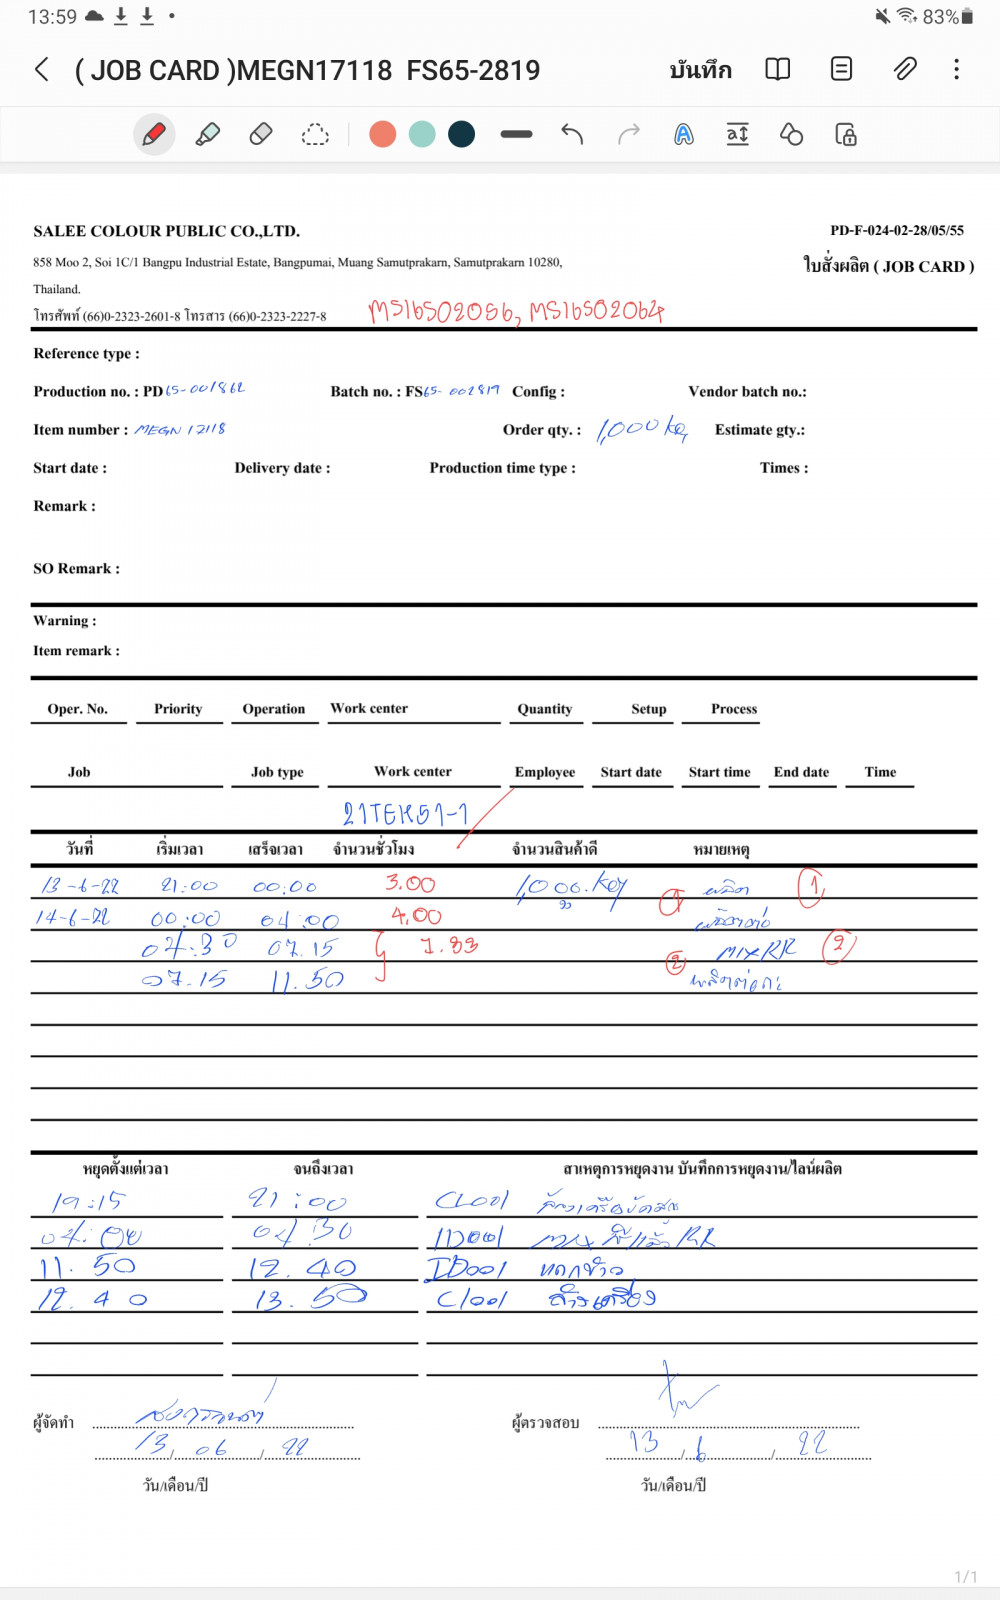 13:59 83%
( JOB CARD )MEGN17118 FS65-2819 บันทึก
SALEE COLOUR PUBLIC CO.,LTD. PD-F-024-02-28/05/55
858 Moo 2, Soi 1C/1 Bangpu Industrial Estate, Bangpumai, Muang Samutprakarn, Samutprakarn 10280, ใบสั่งผลิต ( JOB CARD )
Thailand.
โทรศัพท์ (66)0-2323-2601-8 โทรสาร (66)0-2323-2227-8 MS16502056, MS16502064
Reference type :
Production no. : PD 65-001862 Batch no. : FS 65-002819 Config : Vendor batch no.:
Item number : MEGN 17118 Order qty. : 1,000 kg Estimate gty.:
Start date : Delivery date : Production time type : Times :
Remark :
SO Remark :
Warning :
Item remark :
Oper. No. Priority Operation Work center Quantity Setup Process
Job Job type Work center Employee Start date Start time End date Time
21TEK51-1
วันที่ เริ่มเวลา เสร็จเวลา จำนวนชั่วโมง จำนวนสินค้าดี หมายเหตุ
13-6-22 21:00 00:00 3.00 1,000. ผลิต 1
14-6-22 00:00 04:00 4.00 ผลิตต่อ
04:30 07.15 7.33 2 MIX RR 2
07.15 11.50 ผลิตต่อกะ
หยุดตั้งแต่เวลา จนถึงเวลา สาเหตุการหยุดงาน บันทึกการหยุดงาน/ไลน์ผลิต
19:15 21:00 CL001
04:00 04.30 ID001 MIX RR
11.50 12.40 ID001
12.40 13.50 Cl001 ล้างเครื่อง
ผู้จัดทำ ผู้ตรวจสอบ
13 / 06 / 22 13 / 6 / 22
วัน/เดือน/ปี วัน/เดือน/ปี
1/1